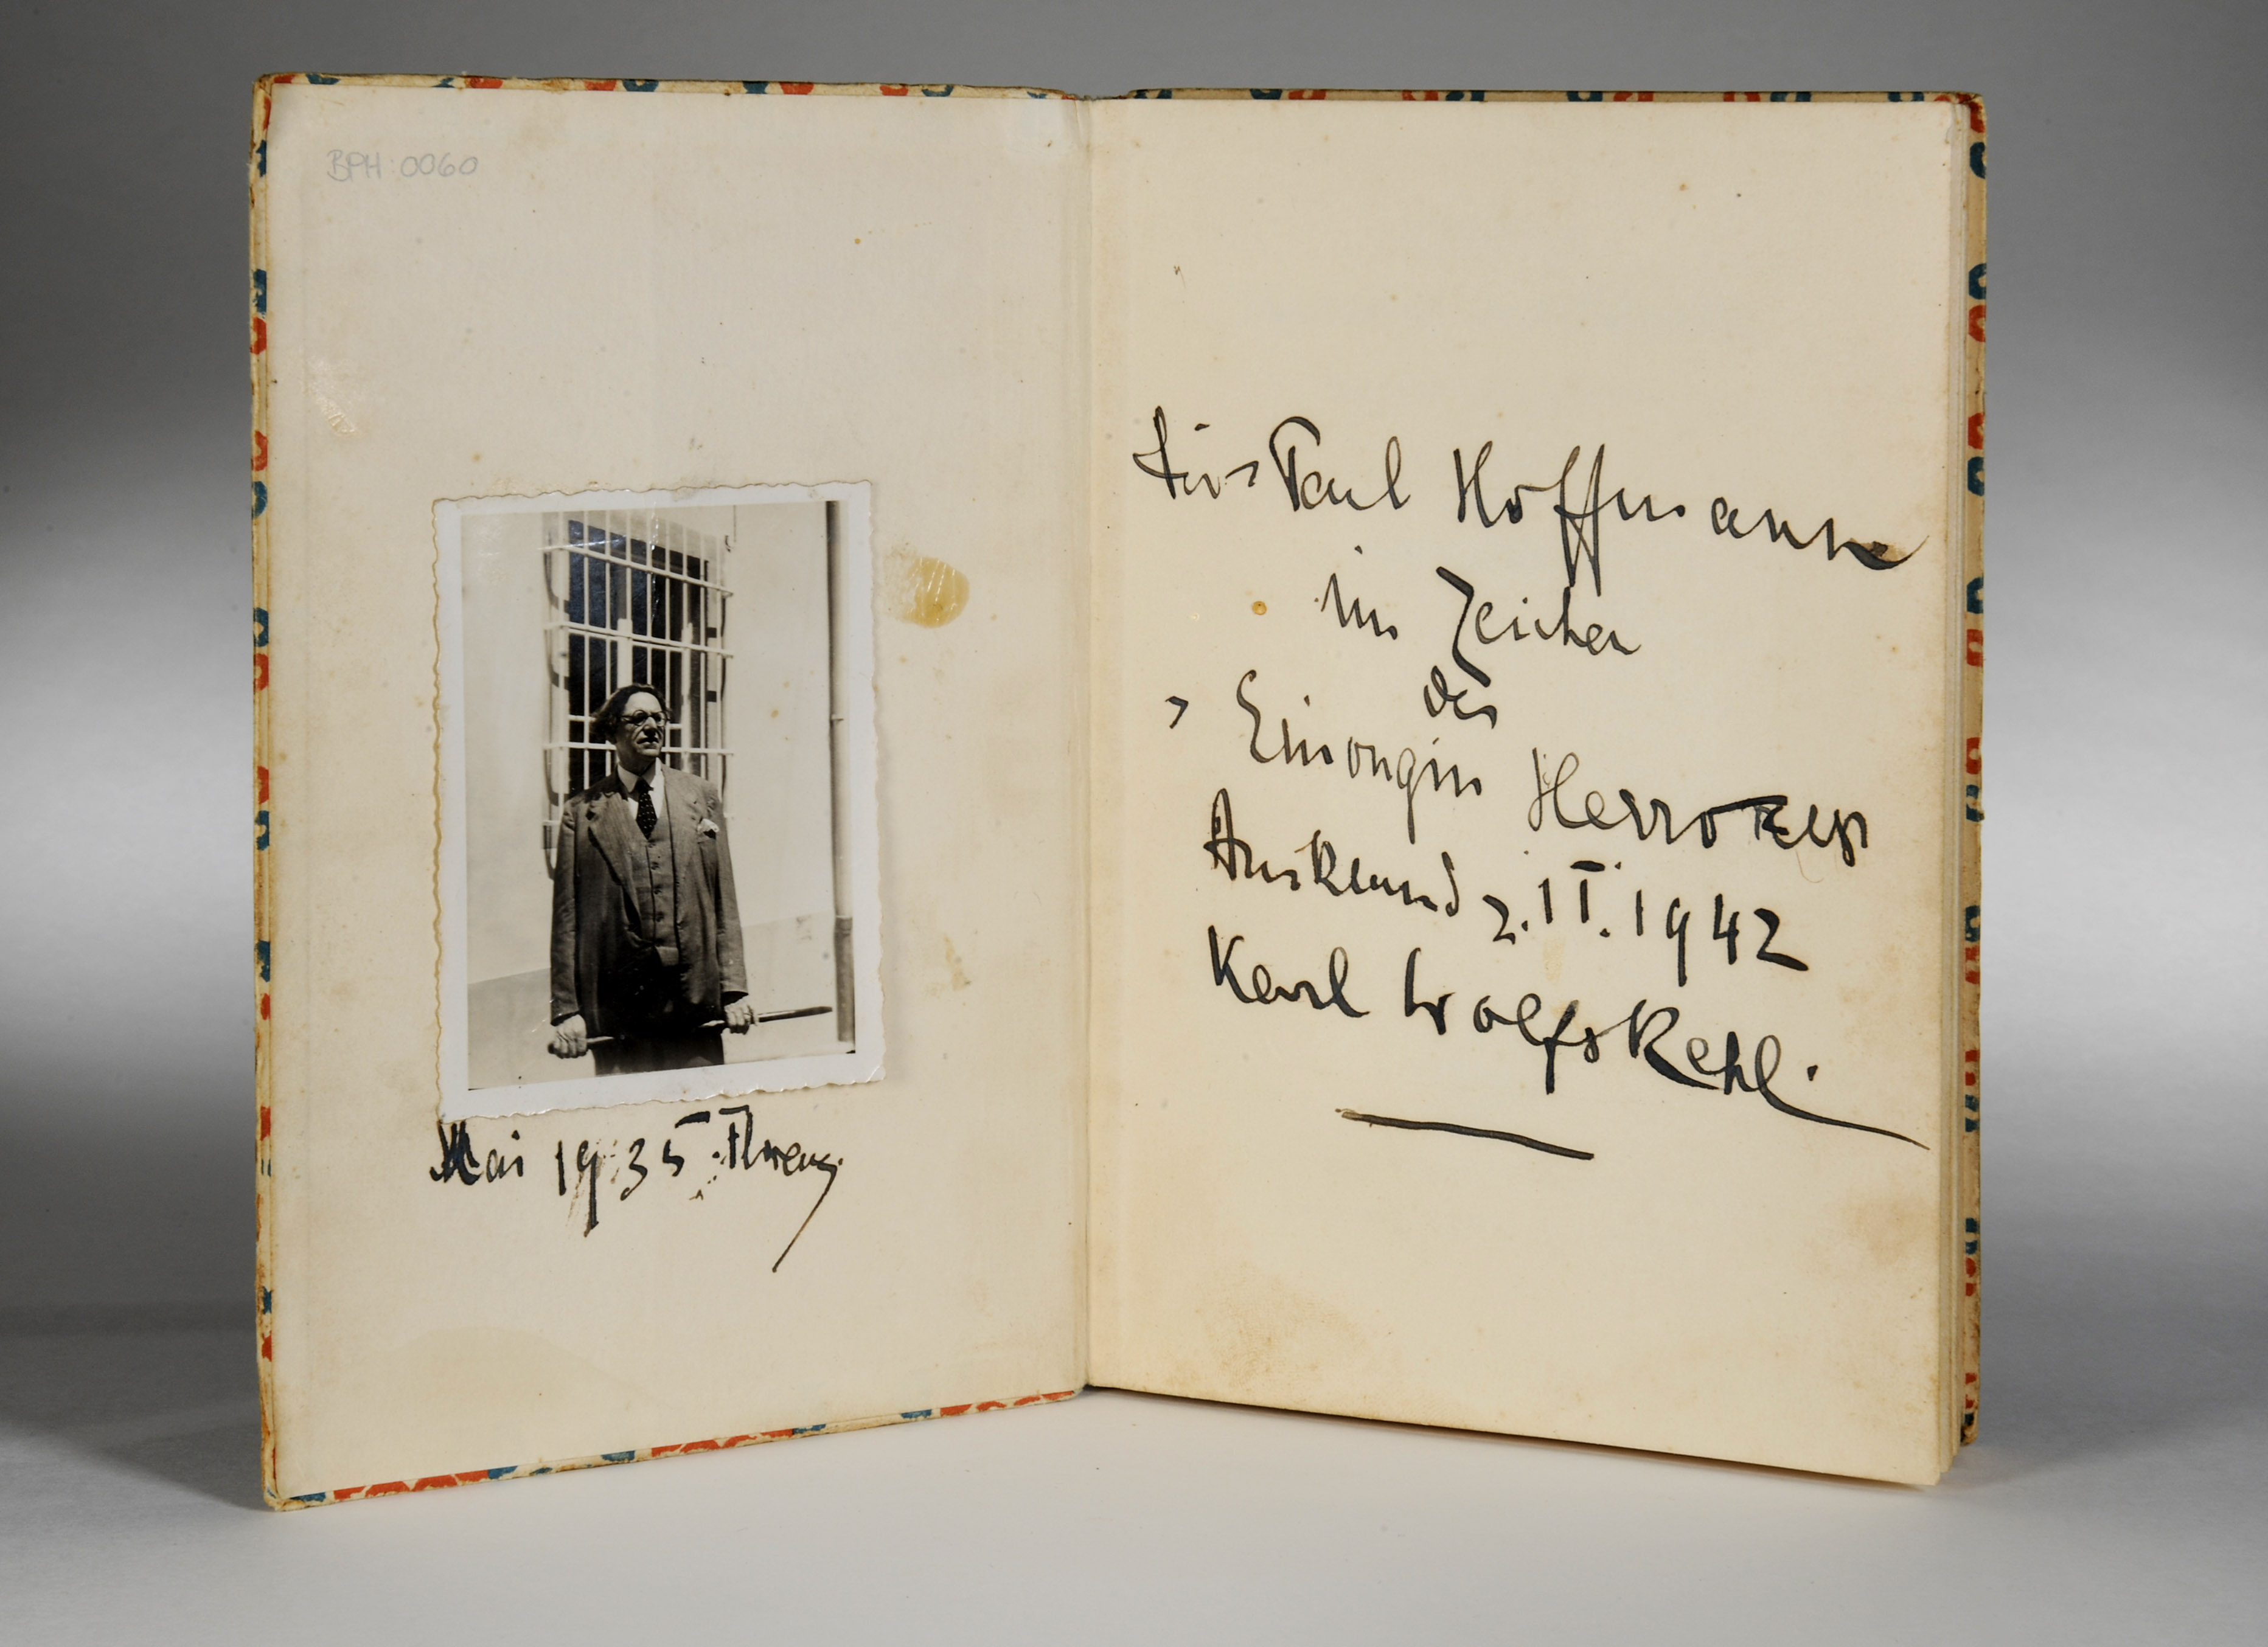 BPH 0060
Mai 1935. Florenz.
Für Paul Hoffmann
im Zeichen
des
Auckland 2.II.1942
Karl Wolfskehl.